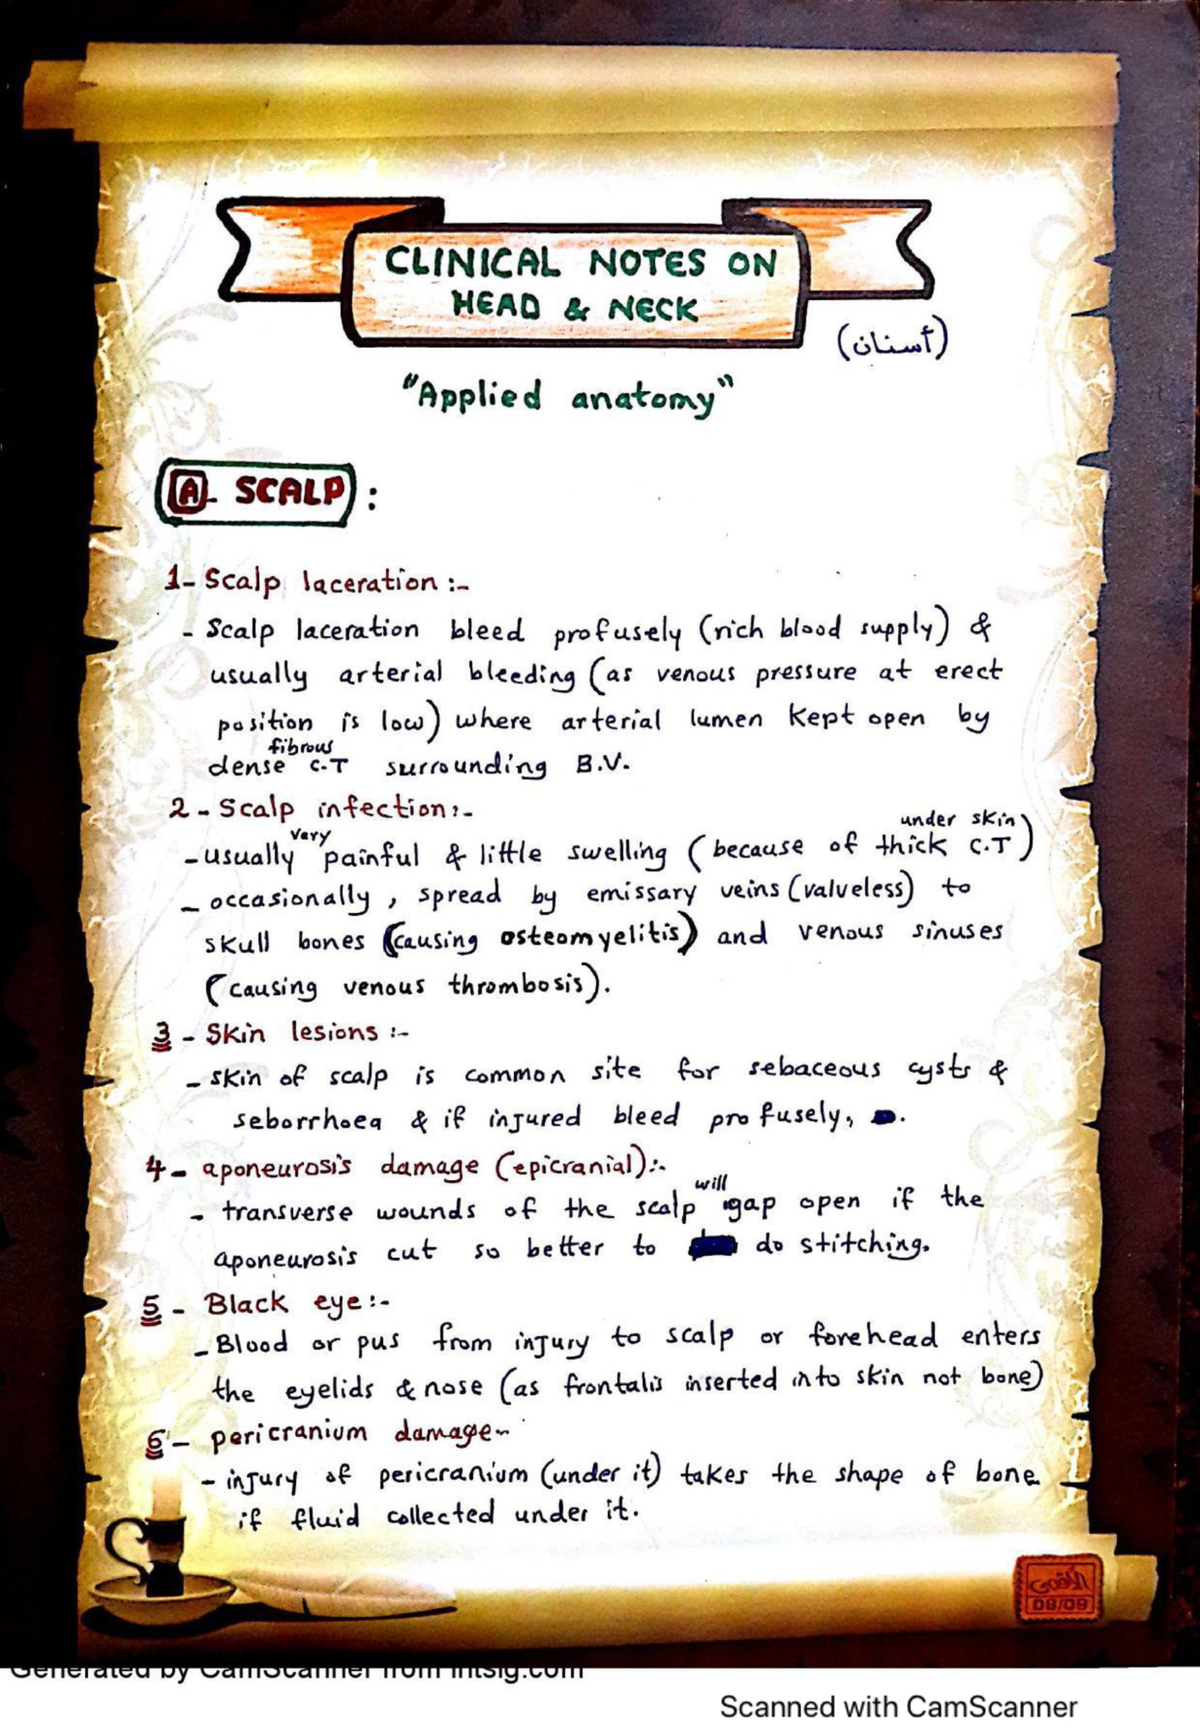 CLINICAL NOTES ON
HEAD & NECK
(أسنان)
"Applied anatomy"
A. SCALP :
1- Scalp laceration :-
- Scalp laceration bleed profusely (rich blood supply) &
usually arterial bleeding (as venous pressure at erect
position is low) where arterial lumen kept open by
dense fibrous C.T surrounding B.V.
2 - Scalp infection :-
- usually very painful & little swelling (because of thick C.T under skin)
- occasionally, spread by emissary veins (valveless) to
skull bones (causing osteomyelitis) and venous sinuses
(causing venous thrombosis).
3 - Skin lesions :-
- skin of scalp is common site for sebaceous cysts &
seborrhoea & if injured bleed profusely, .
4 - aponeurosis damage (epicranial):-
- transverse wounds of the scalp will gap open if the
aponeurosis cut so better to do stitching.
5 - Black eye:-
- Blood or pus from injury to scalp or forehead enters
the eyelids & nose (as frontalis inserted into skin not bone)
6 - pericranium damage-
- injury of pericranium (under it) takes the shape of bone
if fluid collected under it.
08/09
Generated by CamScanner from intsig.com
Scanned with CamScanner